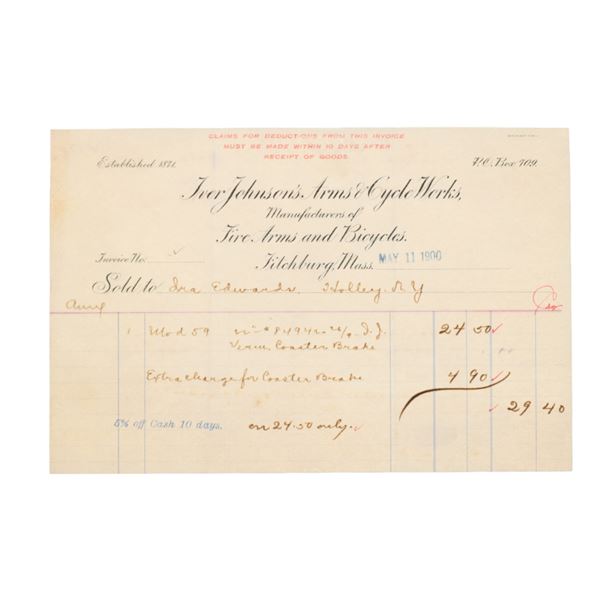 CLAIMS FOR DEDUCTIONS FROM THIS INVOICE
MUST BE MADE WITHIN 10 DAYS AFTER
RECEIPT OF GOODS.
Established 1871.
P.O. Box 709.
Iver Johnson's Arms & Cycle Works,
Manufacturers of
Fire Arms and Bicycles.
Invoice No.
Fitchburg, Mass. MAY 11 1900
Sold to Ira Edwards. Holley. N.Y
1 Mod 59 24 50
Coaster Brake
Extra charge for Coaster Brake 4 90
29 40
5% off Cash 10 days. on 24.50 only.